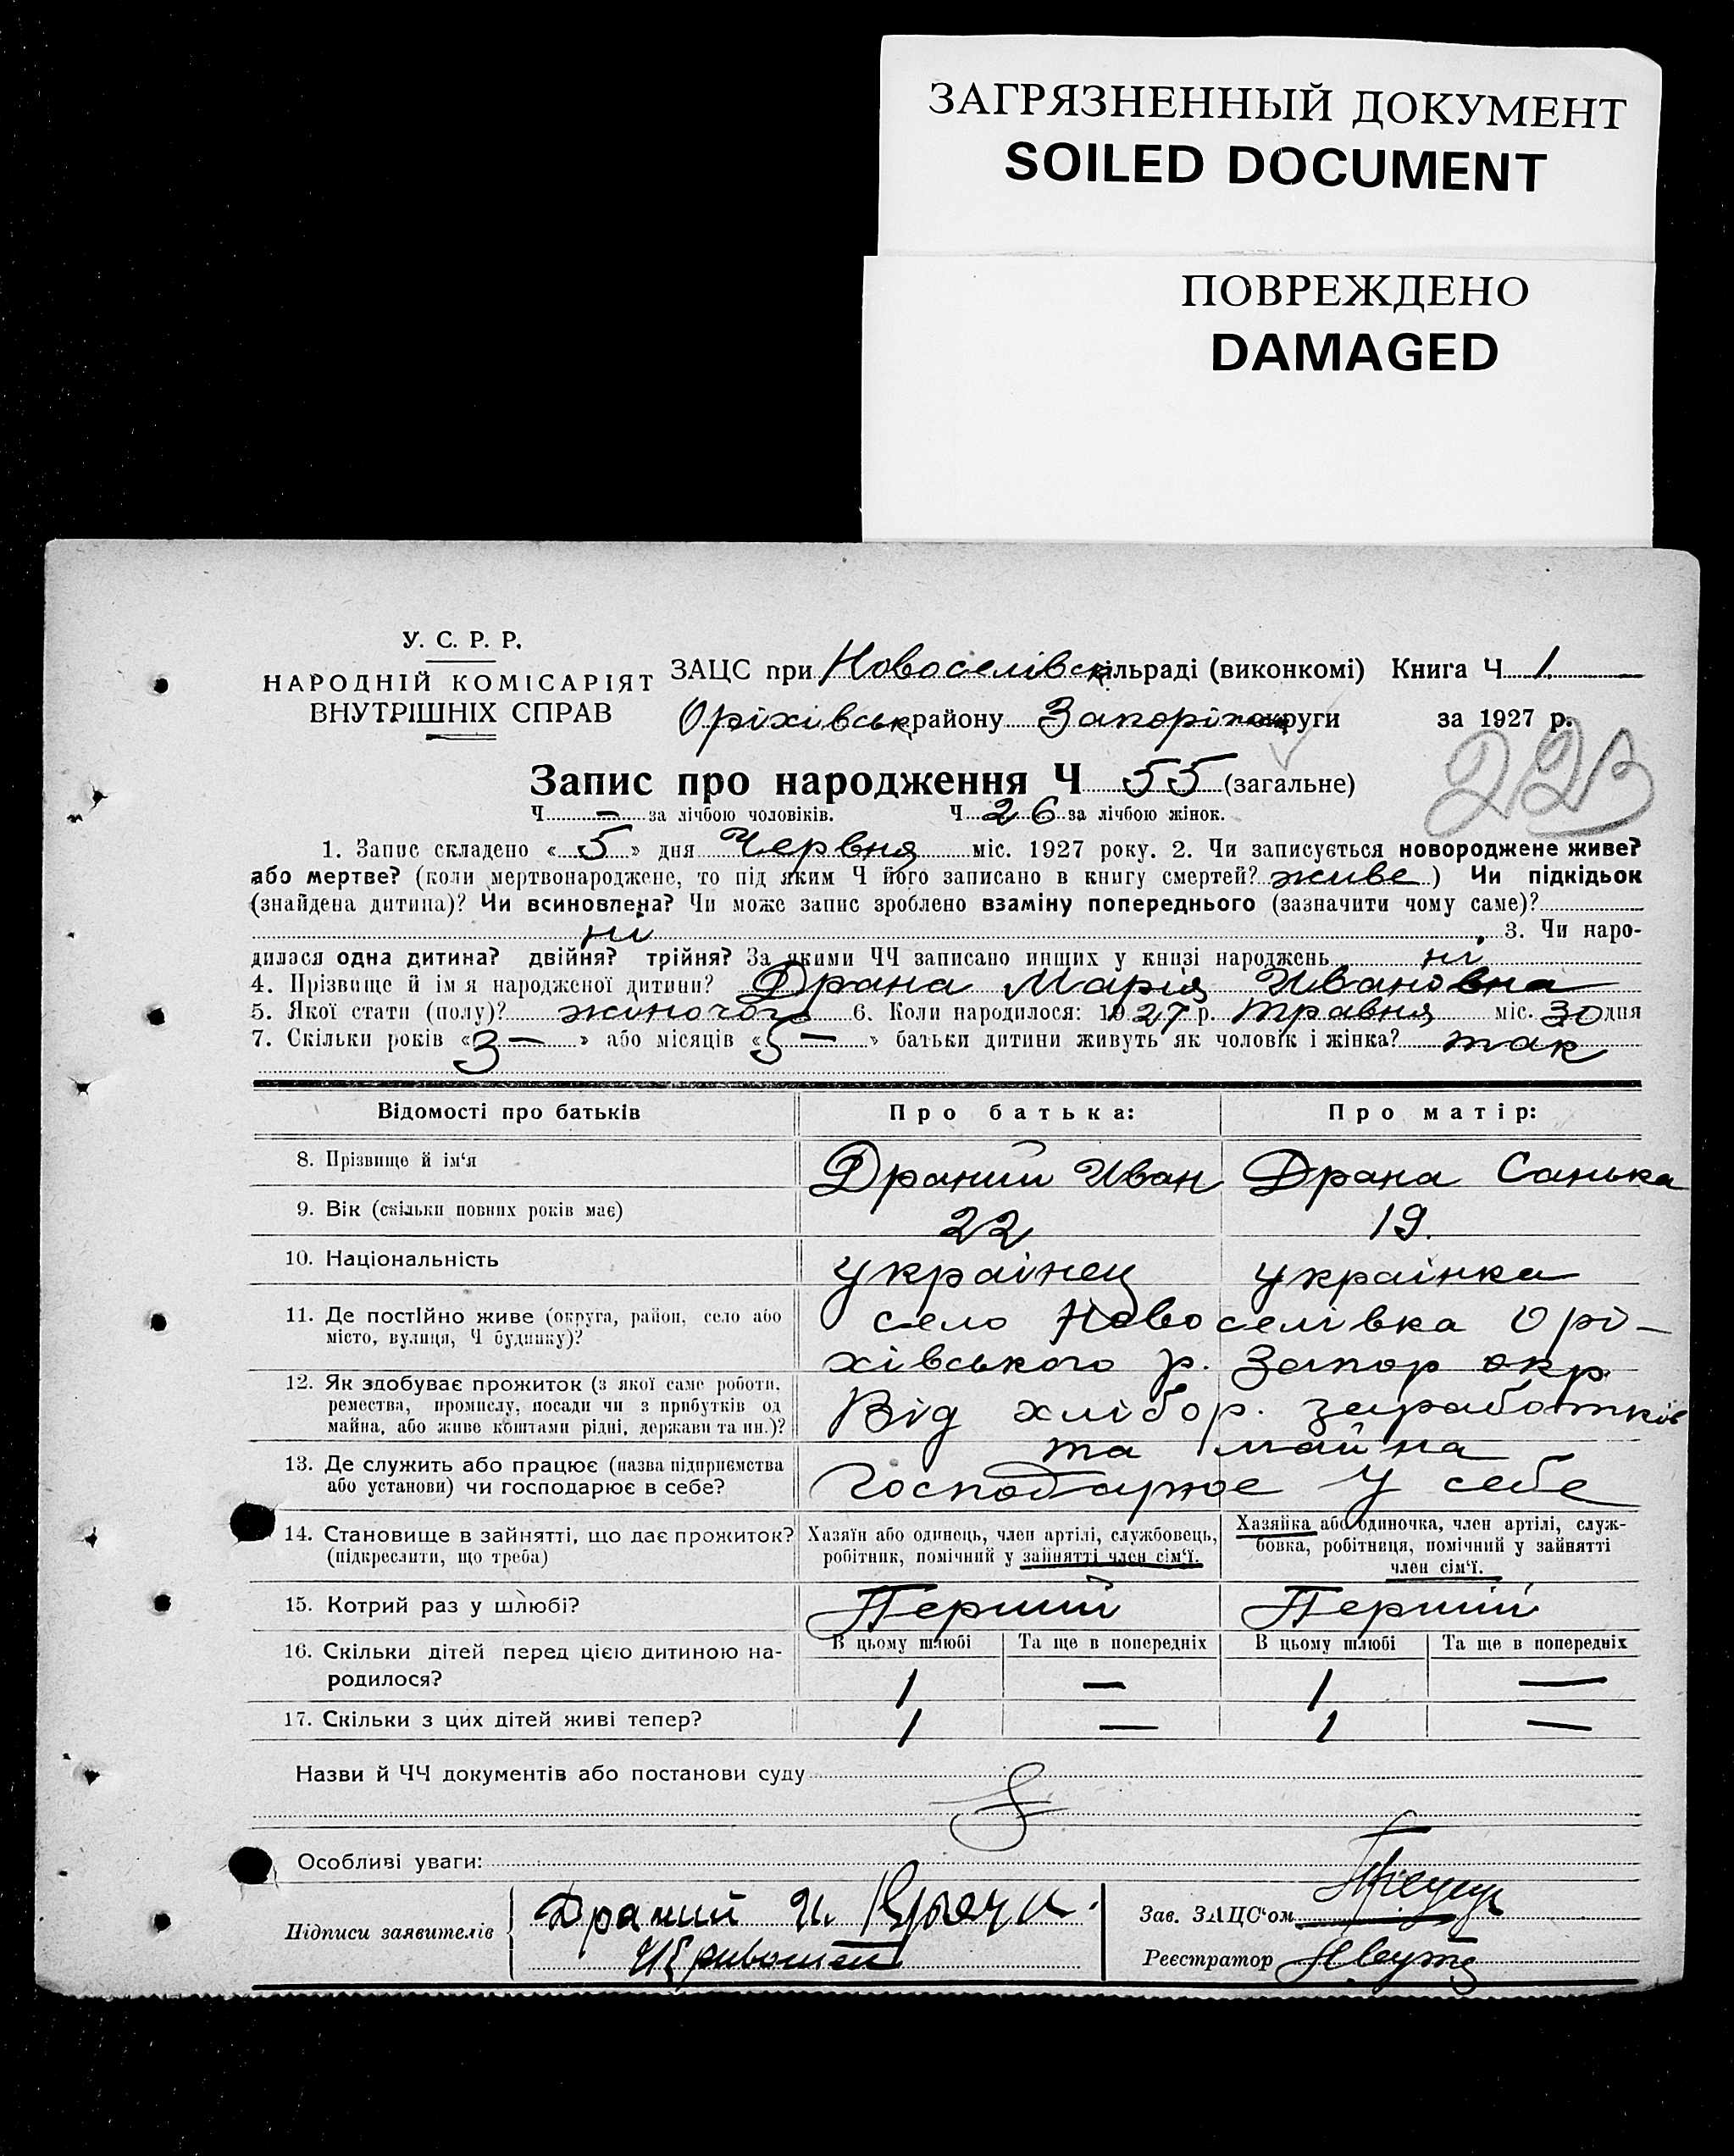 ЗАГРЯЗНЕННЫЙ ДОКУМЕНТ
SOILED DOCUMENT
ПОВРЕЖДЕНО
DAMAGED
У. С. Р. Р.
НАРОДНІЙ КОМІСАРІЯТ
ВНУТРІШНІХ СПРАВ
ЗАЦС при Новоселівськ сільраді (виконкомі) Книга Ч 1.
Оріхівськ району Запоріж округи за 1927 р.
223
Запис про народження Ч 55 (загальне)
Ч — за лічбою чоловіків. Ч 26 за лічбою жінок.
1. Запис складено « 5 » дня Червня міс. 1927 року. 2. Чи записується новороджене живе?
або мертве? (коли мертвонароджене, то під яким Ч його записано в книгу смертей? живе) Чи підкідьок
(знайдена дитина)? Чи всиновлена? Чи може запис зроблено взаміну попереднього (зазначити чому саме)?
ні 3. Чи наро-
дилася одна дитина? двійня? трійня? За якими ЧЧ записано инших у книзі народжень ні
4. Прізвище й ім'я народженої дитини? Драна Марія Ивановна
5. Якої стати (полу)? жіночого 6. Коли народилося: 1927 р. травня міс. 30 дня
7. Скільки років « 3 — » або місяців « 5 — » батьки дитини живуть як чоловік і жінка? так
Відомості про батьків Про батька: Про матір:
8. Прізвище й ім'я Драний Иван Драна Санька
9. Вік (скільки повних років має) 22 19.
10. Національність українец українка
11. Де постійно живе (округа, район, село або село Новоселівка Орі-
місто, вулиця, Ч будинку)? хівського р. Запор окр
12. Як здобуває прожиток (з якої саме роботи, Від хлібор. заработків
ремества, промислу, посади чи з прибутків од
майна, або живе коштами рідні, держави та ин.)? та майна
13. Де служить або працює (назва підприємства Господарює у себе
або установи) чи господарює в себе?
14. Становище в зайнятті, що дає прожиток? Хазяїн або одинець, член артілі, службовець, Хазяйка або одиночка, член артілі, служ-
(підкреслити, що треба) робітник, помічний у зайнятті член сім'ї. бовка, робітниця, помічний у зайнятті
член сім'ї.
15. Котрий раз у шлюбі? Перший Перший
В цьому шлюбі Та ще в попередніх В цьому шлюбі Та ще в попередніх
16. Скільки дітей перед цією дитиною на-
родилося? 1 — 1 —
17. Скільки з цих дітей живі тепер? 1 — 1 —
Назви й ЧЧ документів або постанови суду
Особливі уваги:
Підписи заявителів Драний И.
Зав. ЗАЦС'ом
Реєстратор